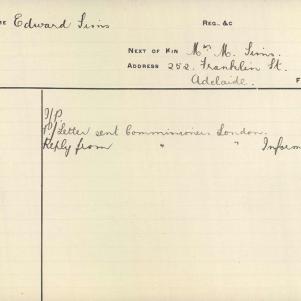 ME Edward Sims REG. &C
NEXT OF KIN Mrs M. Sims.
ADDRESS 252. Franklin St.
Adelaide. F
I/P.
P/Letter sent Commissioners London.
Reply from " " Inform